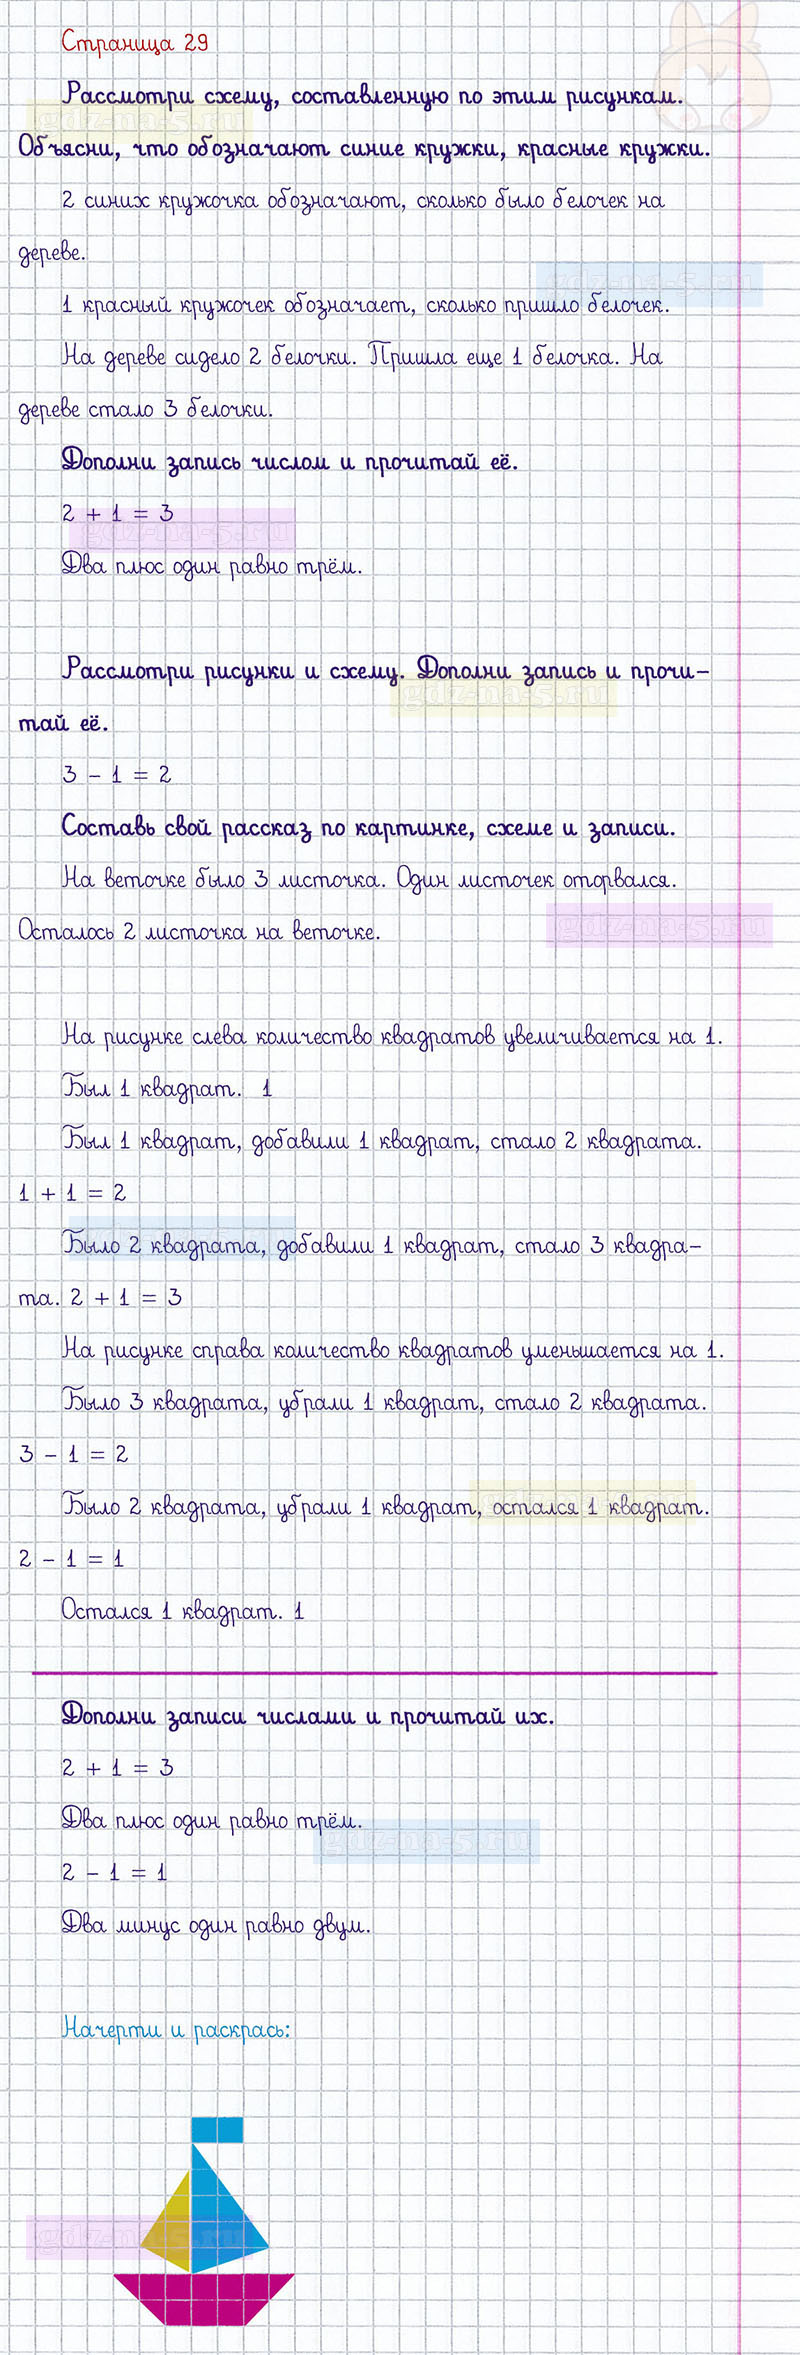 Страница 29
Рассмотри схему, составленную по этим рисункам.
gdz-na-5.ru
Объясни, что обозначают синие кружки, красные кружки.
2 синих кружочка обозначают, сколько было белочек на
дереве.
gdz-na-5.ru
1 красный кружочек обозначает, сколько пришло белочек.
На дереве сидело 2 белочки. Пришла еще 1 белочка. На
дереве стало 3 белочки.
Дополни запись числом и прочитай её.
2 + 1 = 3
gdz-na-5.ru
Два плюс один равно трём.
Рассмотри рисунки и схему. Дополни запись и прочи-
gdz-na-5.ru
тай её.
3 - 1 = 2
Составь свой рассказ по картинке, схеме и записи.
На веточке было 3 листочка. Один листочек оторвался.
Осталось 2 листочка на веточке.
gdz-na-5.ru
На рисунке слева количество квадратов увеличивается на 1.
Был 1 квадрат. 1
Был 1 квадрат, добавили 1 квадрат, стало 2 квадрата.
1 + 1 = 2
gdz-na-5.ru
Было 2 квадрата, добавили 1 квадрат, стало 3 квадра-
та. 2 + 1 = 3
На рисунке справа количество квадратов уменьшается на 1.
Было 3 квадрата, убрали 1 квадрат, стало 2 квадрата.
3 - 1 = 2
Было 2 квадрата, убрали 1 квадрат, остался 1 квадрат.
gdz-na-5.ru
2 - 1 = 1
Остался 1 квадрат. 1
Дополни записи числами и прочитай их.
2 + 1 = 3
Два плюс один равно трём.
gdz-na-5.ru
2 - 1 = 1
Два минус один равно двум.
Начерти и раскрась:
gdz-na-5.ru